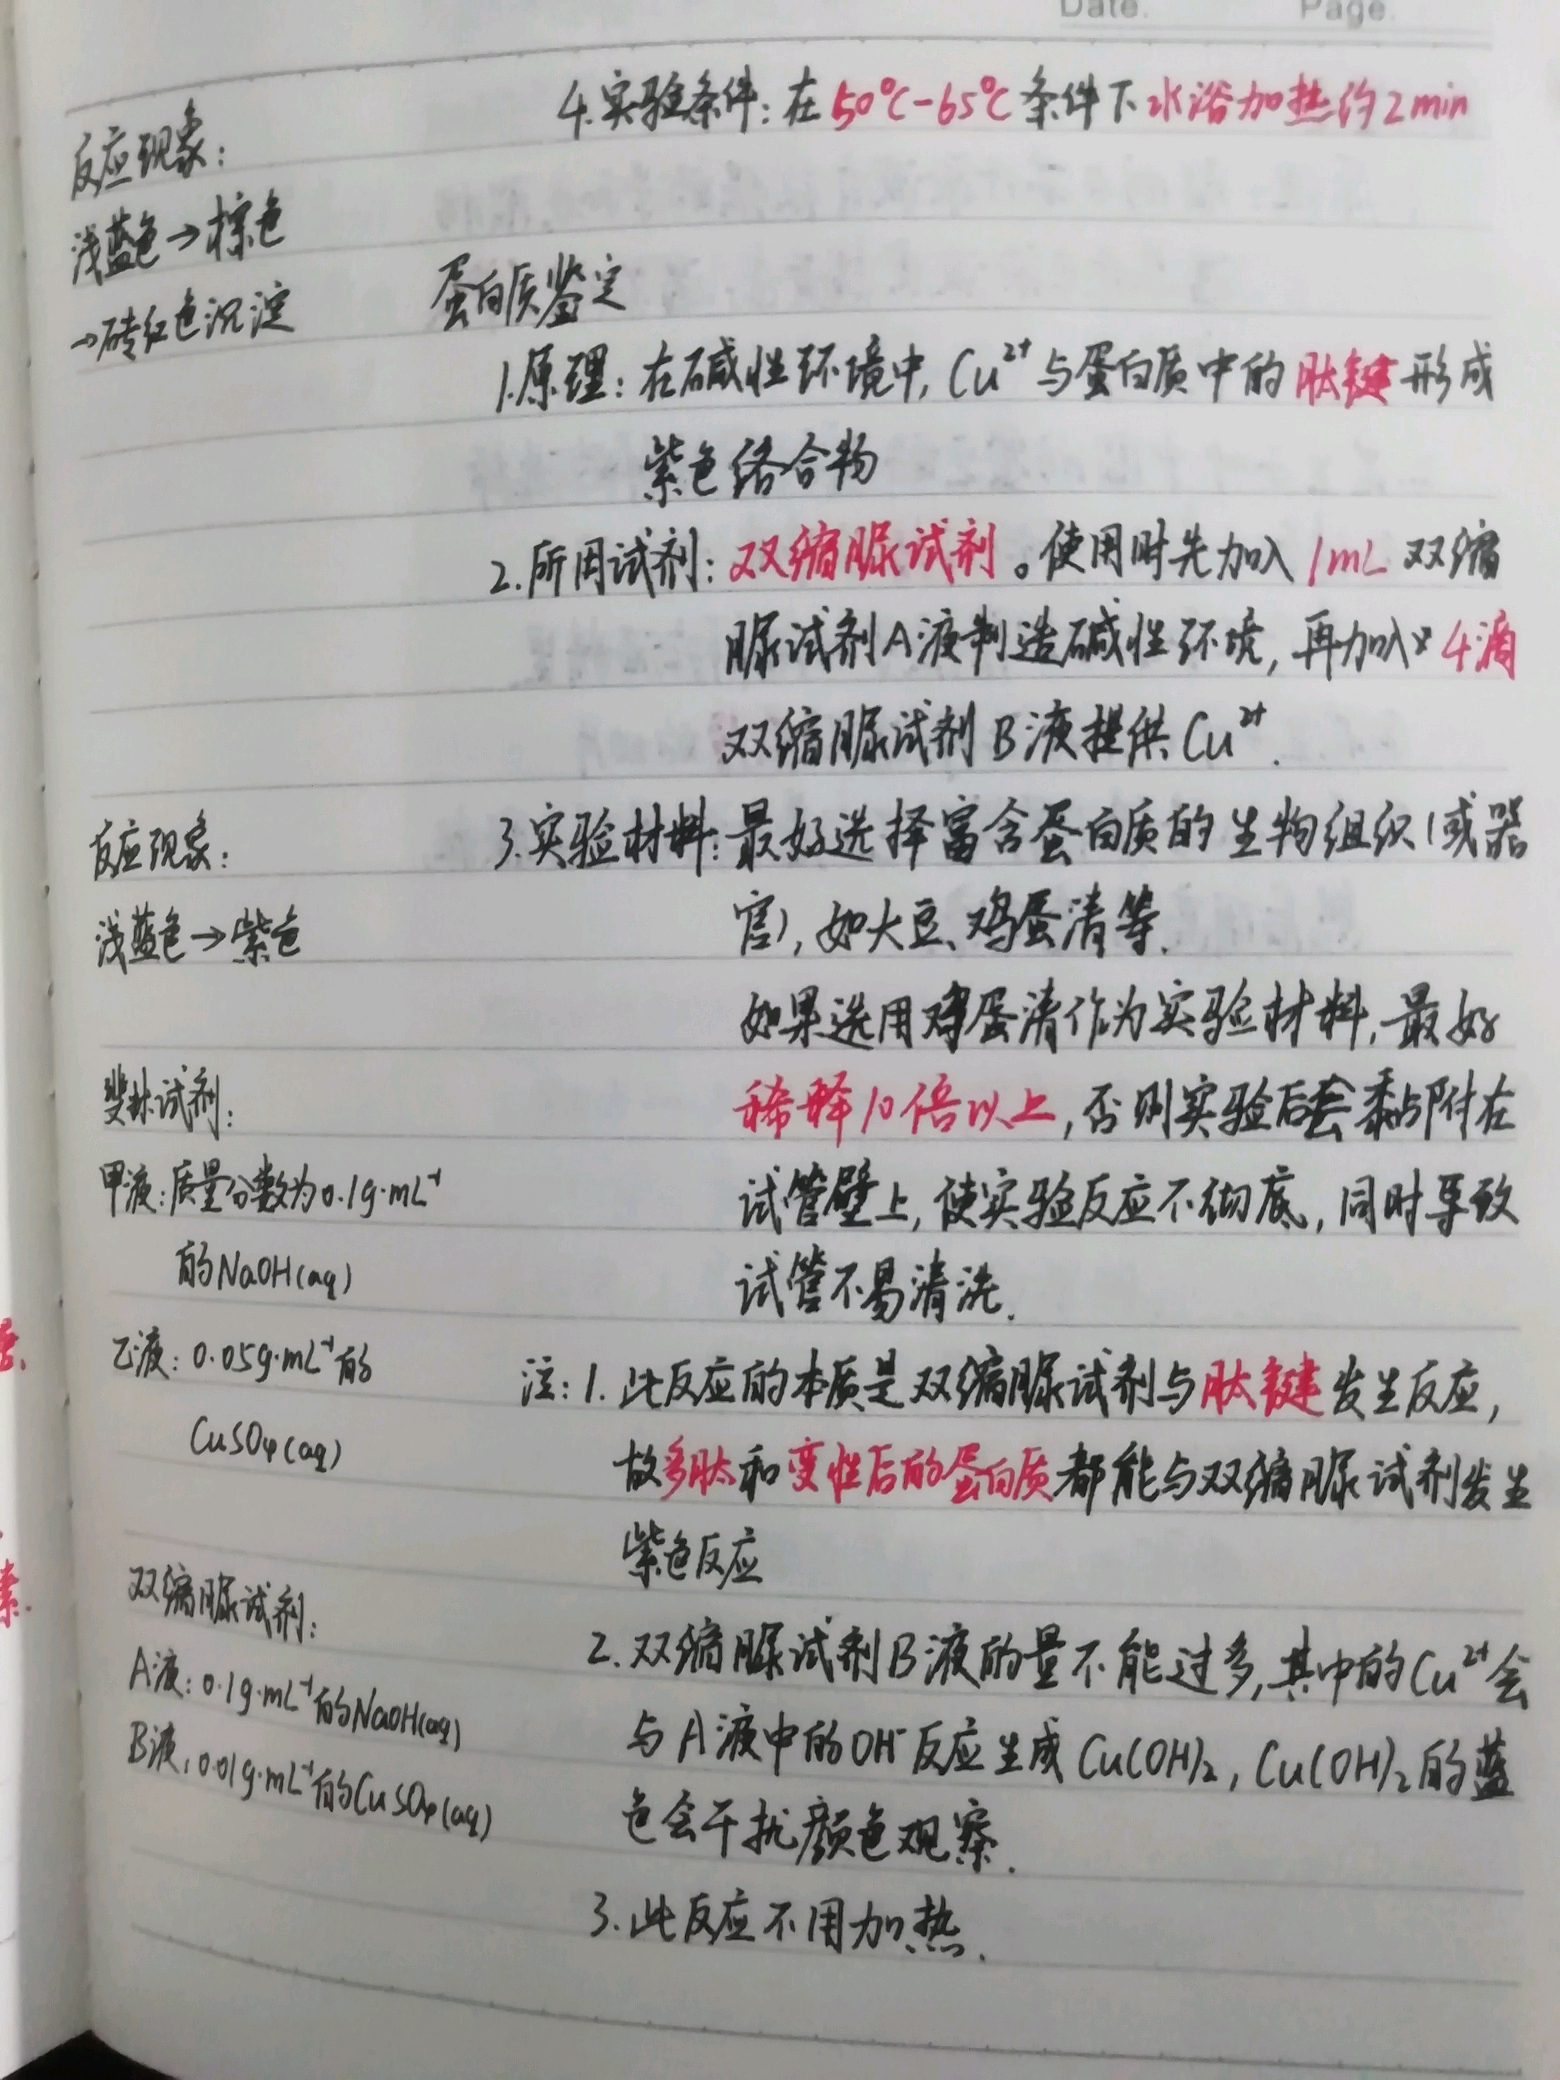 Date. Page.
4.实验条件：在50℃-65℃条件下水浴加热约2min
反应现象：
浅蓝色→棕色
→砖红色沉淀
蛋白质鉴定
1.原理：在碱性环境中，Cu²⁺与蛋白质中的肽键形成
紫色络合物
2.所用试剂：双缩脲试剂。使用时先加入1mL双缩
脲试剂A液制造碱性环境，再加入 4滴
双缩脲试剂B液提供Cu²⁺.
反应现象：
浅蓝色→紫色
3.实验材料：最好选择富含蛋白质的生物组织(或器
官)，如大豆、鸡蛋清等.
如果选用鸡蛋清作为实验材料，最好
稀释10倍以上，否则实验后会黏附在
试管壁上，使实验反应不彻底，同时导致
试管不易清洗.
斐林试剂：
甲液：质量分数为0.1g·mL⁻¹
的NaOH(aq)
乙液：0.05g·mL⁻¹的
CuSO₄(aq)
注：1.此反应的本质是双缩脲试剂与肽键发生反应，
故多肽和变性后的蛋白质都能与双缩脲试剂发生
紫色反应
双缩脲试剂：
A液：0.1g·mL⁻¹的NaOH(aq)
B液：0.01g·mL⁻¹的CuSO₄(aq)
2.双缩脲试剂B液的量不能过多，其中的Cu²⁺会
与A液中的OH⁻反应生成Cu(OH)₂，Cu(OH)₂的蓝
色会干扰颜色观察.
3.此反应不用加热.